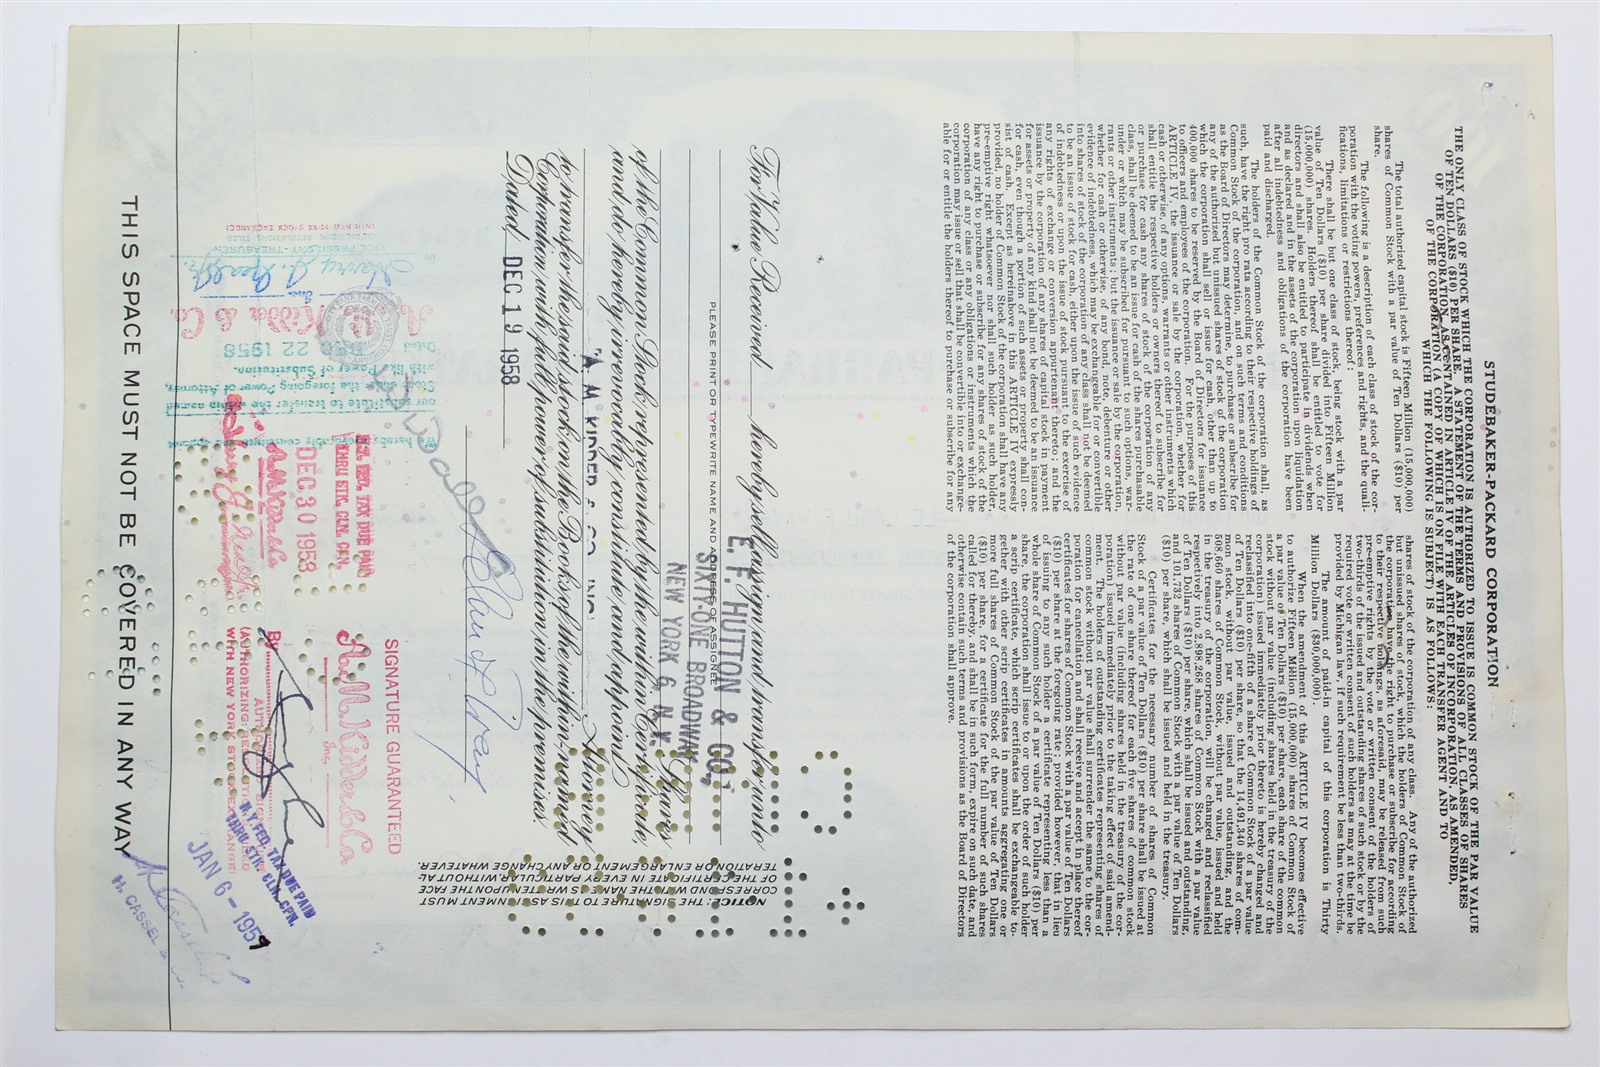 STUDEBAKER-PACKARD CORPORATION
THE ONLY CLASS OF STOCK WHICH THE CORPORATION IS AUTHORIZED TO ISSUE IS COMMON STOCK OF THE PAR VALUE
OF TEN DOLLARS ($10) PER SHARE. A STATEMENT OF THE TERMS AND PROVISIONS OF ALL CLASSES OF SHARES
OF THE CORPORATION IS CONTAINED IN ARTICLE IV OF THE ARTICLES OF INCORPORATION, AS AMENDED,
OF THE CORPORATION (A COPY OF WHICH IS ON FILE WITH EACH TRANSFER AGENT AND TO
WHICH THE FOLLOWING IS SUBJECT) IS AS FOLLOWS:
The total authorized capital stock is Fifteen Million (15,000,000)
shares of Common Stock with a par value of Ten Dollars ($10) per
share.
The following is a description of each class of stock of the cor-
poration with the voting powers, preferences and rights, and the quali-
fications, limitations or restrictions thereof:
There shall be but one class of stock, being stock with a par
value of Ten Dollars ($10) per share divided into Fifteen Million
(15,000,000) shares. Holders thereof shall be entitled to vote for
directors and shall also be entitled to participate in dividends when
and as declared and in the assets of the corporation upon liquidation
after all indebtedness and obligations of the corporation have been
paid and discharged.
The holders of the Common Stock of the corporation shall, as
such, have the right, pro rata according to their respective holdings of
Common Stock of the corporation, and on such terms and conditions
as the Board of Directors may determine, to purchase or subscribe for
any of the authorized but unissued shares of stock of the corporation
which the corporation shall sell or issue for cash, other than up to
400,000 shares to be reserved by the Board of Directors for issuance
to officers and employees of the corporation. For the purposes of this
ARTICLE IV, the issuance or sale by the corporation, whether for
cash or otherwise, of any options, warrants or other instruments which
shall entitle the respective holders or owners thereof to subscribe for
or purchase for cash any shares of stock of the corporation of any
class, shall be deemed to be an issue for cash of the shares purchasable
under or which may be subscribed for pursuant to such options, war-
rants or other instruments; but the issuance or sale by the corporation,
whether for cash or otherwise, of any bond, note, debenture or other
evidence of indebtedness, which may be exchangeable for or convertible
into shares of stock of the corporation of any class shall not be deemed
to be an issue of stock for cash, either upon the issue of such evidence
of indebtedness or upon the issue of stock pursuant to the exercise of
any rights of exchange or conversion appurtenant thereto; and the
issuance by the corporation of any shares of capital stock in payment
for assets or property of any kind shall not be deemed to be an issuance
for cash, even though a portion of such assets or property shall con-
sist of cash. Except as hereinabove in this ARTICLE IV expressly
provided, no holder of Common Stock of the corporation shall have any
pre-emptive right whatsoever nor shall any such holder, as such holder,
have any right to purchase or subscribe for any shares of stock of the
corporation of any class or any obligations or instruments which the
corporation may issue or sell that shall be convertible into or exchange-
able for or entitle the holders thereof to purchase or subscribe for any
shares of stock of the corporation of any class. Any of the authorized
but unissued shares of stock, which the holders of Common Stock of
the corporation have the right to purchase or subscribe for according
to their respective holdings, as aforesaid, may be released from such
pre-emptive rights by the vote or written consent of the holders of
two-thirds of the issued and outstanding shares of such stock or by the
required vote or written consent of such holders as may at the time be
provided by Michigan law, if such requirement be less than two-thirds.
The amount of paid-in capital of this corporation is Thirty
Million Dollars ($30,000,000).
When the amendment of this ARTICLE IV becomes effective
to authorize Fifteen Million (15,000,000) shares of Common Stock of
a par value of Ten Dollars ($10) per share, each share of the common
stock without par value (including shares held in the treasury of the
corporation) issued immediately prior thereto is hereby changed and
reclassified into one-fifth of a share of Common Stock of a par value
of Ten Dollars ($10) per share, so that the 14,491,340 shares of com-
mon stock, without par value, issued and outstanding, and the
508,660 shares of Common Stock, without par value, issued and held
in the treasury of the corporation, will be changed and reclassified
respectively into 2,898,268 shares of Common Stock with a par value
of Ten Dollars ($10) per share, which shall be issued and outstanding,
and 101,732 shares of Common Stock with a par value of Ten Dollars
($10) per share, which shall be issued and held in the treasury.
Certificates for the necessary number of shares of Common
Stock of a par value of Ten Dollars ($10) per share shall be issued at
the rate of one share thereof for each five shares of common stock
without par value (including shares held in the treasury of the cor-
poration) issued immediately prior to the taking effect of said amend-
ment. The holders of outstanding certificates representing shares of
common stock without par value shall surrender the same to the cor-
poration for cancellation and shall receive and accept in place thereof
certificates for shares of Common Stock with a par value of Ten Dollars
($10) per share at the foregoing rate; provided however, that in lieu
of issuing to any such holder a certificate representing less than a
whole share of Common Stock of a par value of Ten Dollars ($10) per
share, the corporation shall issue to or upon the order of such holder
a scrip certificate, which scrip certificates shall be exchangeable to-
gether with other scrip certificates in amounts aggregating one or
more full shares of Common Stock of the par value of Ten Dollars
($10) per share, for a certificate for the full number of such shares
called for thereby, and shall be in such form, expire on such date, and
otherwise contain such terms and provisions as the Board of Directors
of the corporation shall approve.
For Value Received hereby sell, assign and transfer unto
E. F. HUTTON & CO.
PLEASE PRINT OR TYPEWRITE NAME AND ADDRESS OF ASSIGNEE
SIXTY-ONE BROADWAY
NEW YORK 6, N.Y. Shares
of the Common Stock represented by the within Certificate,
and do hereby irrevocably constitute and appoint
A. M. KIDDER & CO., INC. Attorney
to transfer the said stock on the Books of the within-named
Corporation with full power of substitution in the premises.
Dated DEC 19 1958
NOTICE: THE SIGNATURE TO THIS ASSIGNMENT MUST
CORRESPOND WITH THE NAME AS WRITTEN UPON THE FACE
OF THE CERTIFICATE IN EVERY PARTICULAR, WITHOUT AL-
TERATION OR ENLARGEMENT OR ANY CHANGE WHATEVER.
SIGNATURE GUARANTEED
A. M. Kidder & Co.
Inc.
By
AUTHORIZED SIGNATURE
(AUTHORIZING RESOLUTION FILED
WITH NEW YORK STOCK EXCHANGE)
N.Y. FED. TAX DUE PAID
THRU STK. CLR. CPN.
JAN 6 - 1959
H. CASSEL &
THRU STK. CLN. CPN.
DEC 30 1958
our substitute to transfer the within named
Stock under the foregoing Power of Attorney,
with like Power of Substitution.
Dated DEC 22 1958
A. M. Kidder & Co.
Inc.
By
VICE-PRESIDENT - TREASURER
THIS SPACE MUST NOT BE COVERED IN ANY WAY